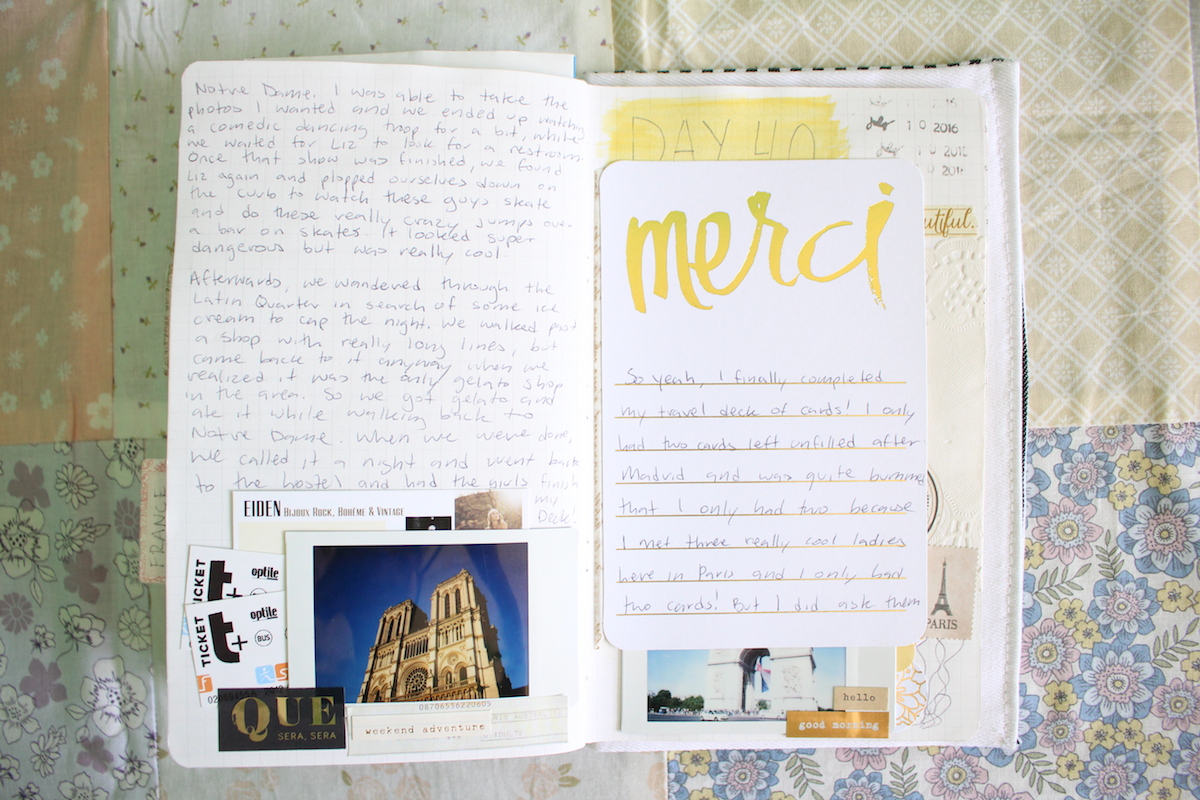 Notre Dame. I was able to take the
photos I wanted and we ended up watching
a comedic dancing troop for a bit, while
we waited for Liz to look for a restroom.
Once that show was finished, we found
Liz again and plopped ourselves down on
the curb to watch these guys skate
and do these really crazy jumps over
a bar on skates. It looked super
dangerous but was really cool.
Afterwards, we wandered through the
Latin Quarter in search of some ice
cream to cap the night. We walked past
a shop with really long lines, but
came back to it anyway when we
realized it was the only gelato shop
in the area. So we got gelato and
ate it while walking back to
Notre Dame. When we were done,
we called it a night and went back
to the hostel and had the girls finish
my
Deck!
FRANCE
EIDEN BIJOUX ROCK, BOHÈME & VINTAGE
TICKET
t+
optile
TICKET
t+
optile
BUS
QUE
SERA, SERA
08706556220605
weekend adventure
DAY 40
July 10 2016
10 2016
2016
utiful.
merci
So yeah, I finally completed
my travel deck of cards! I only
had two cards left unfilled after
Madrid and was quite bummed
that I only had two because
I met three really cool ladies
here in Paris and I only had
two cards! But I did ask them
PARIS
hello
good morning